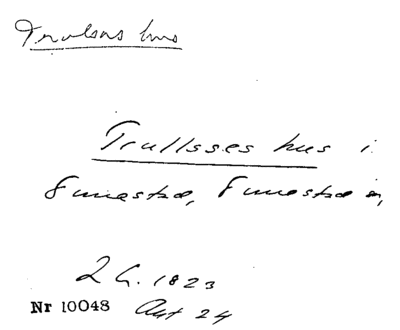 Trulsas hus
Trullsses hus i
Funestad, Funestad sn,
2 G. 1823
Nr 10048 Akt 24